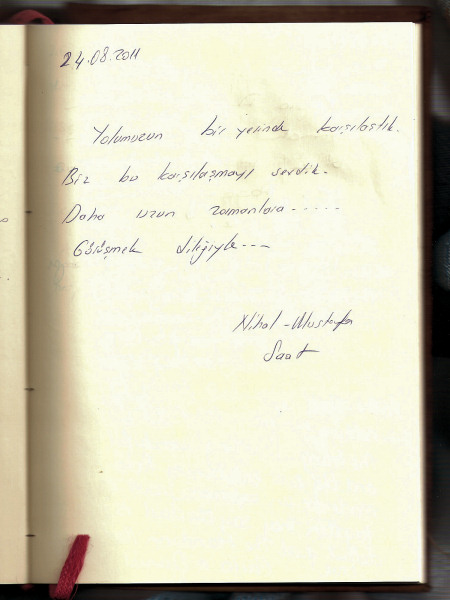 24.08.2011
Yolumuzun bir yerinde karşılaştık.
Biz bu karşılaşmayı sevdik.
Daha uzun zamanlara.....
Görüşmek dileğiyle...
Nihal-Mustafa
Saat